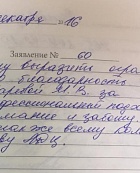 декабре 16
Заявление № 60
у выразить огро
благодарность
М. В. за
фессиональный подх
мание и заботу.
также всему кол
ву